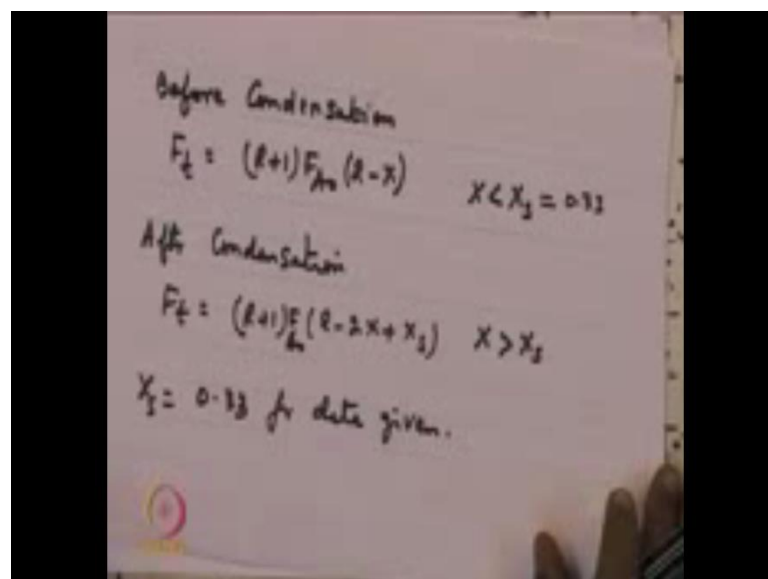 Before Condensation
F_t = (R+1) F_A0 (2-X) X < X_s = 0.33
After Condensation
F_t = (R+1) F_A0 (2-2X+X_s) X > X_s
X_s = 0.33 for data given.